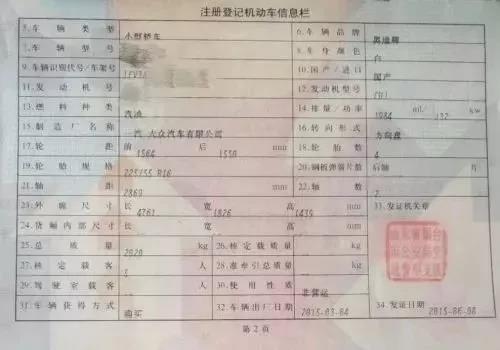 注册登记机动车信息栏
5.车辆类型 小型轿车 6.车辆品牌 奥迪牌
7.车辆型号 8.车身颜色 白
9.车辆识别代号/车架号 LFV3A 10.国产/进口 国产
11.发动机号 12.发动机型号
13.燃料种类 汽油 14.排量/功率 1984 ml/ 132 kw
15.制造厂名称 一汽-大众汽车有限公司 16.转向形式 方向盘
17.轮距 前 1564 后 1550 mm 18.轮胎数 4
19.轮胎规格 225/55 R16 20.钢板弹簧片数 后轴 片
21.轴距 2869 mm 22.轴数 2
23.外廓尺寸 长 4761 宽 1826 高 1439 mm 33.发证机关章
24.货厢内部尺寸 长 宽 高 mm
25.总质量 kg 26.核定载质量 kg
27.核定载客 5 人 28.准牵引总质量 kg
29.驾驶室载客 人 30.使用性质 非营运
31.车辆获得方式 购买 32.车辆出厂日期 2015-03-04 34.发证日期 2015-06-08
第2页